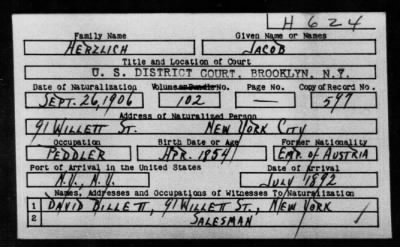 H 624
Family Name Given Name or Names
HERZLICH JACOB
Title and Location of Court
U. S. DISTRICT COURT, BROOKLYN, N.Y.
Date of Naturalization Volume or Bundle No. Page No. Copy of Record No.
SEPT. 26, 1906 102 — 597
Address of Naturalized Person
91 WILLETT ST. NEW YORK CITY
Occupation Birth Date or Age Former Nationality
PEDDLER APR. 1854 EMP. OF AUSTRIA
Port of Arrival in the United States Date of Arrival
N.Y., N.Y. JULY 1892
Names, Addresses and Occupations of Witnesses To Naturalization
1 DAVID BILLETT, 91 WILLETT ST., NEW YORK
2 SALESMAN